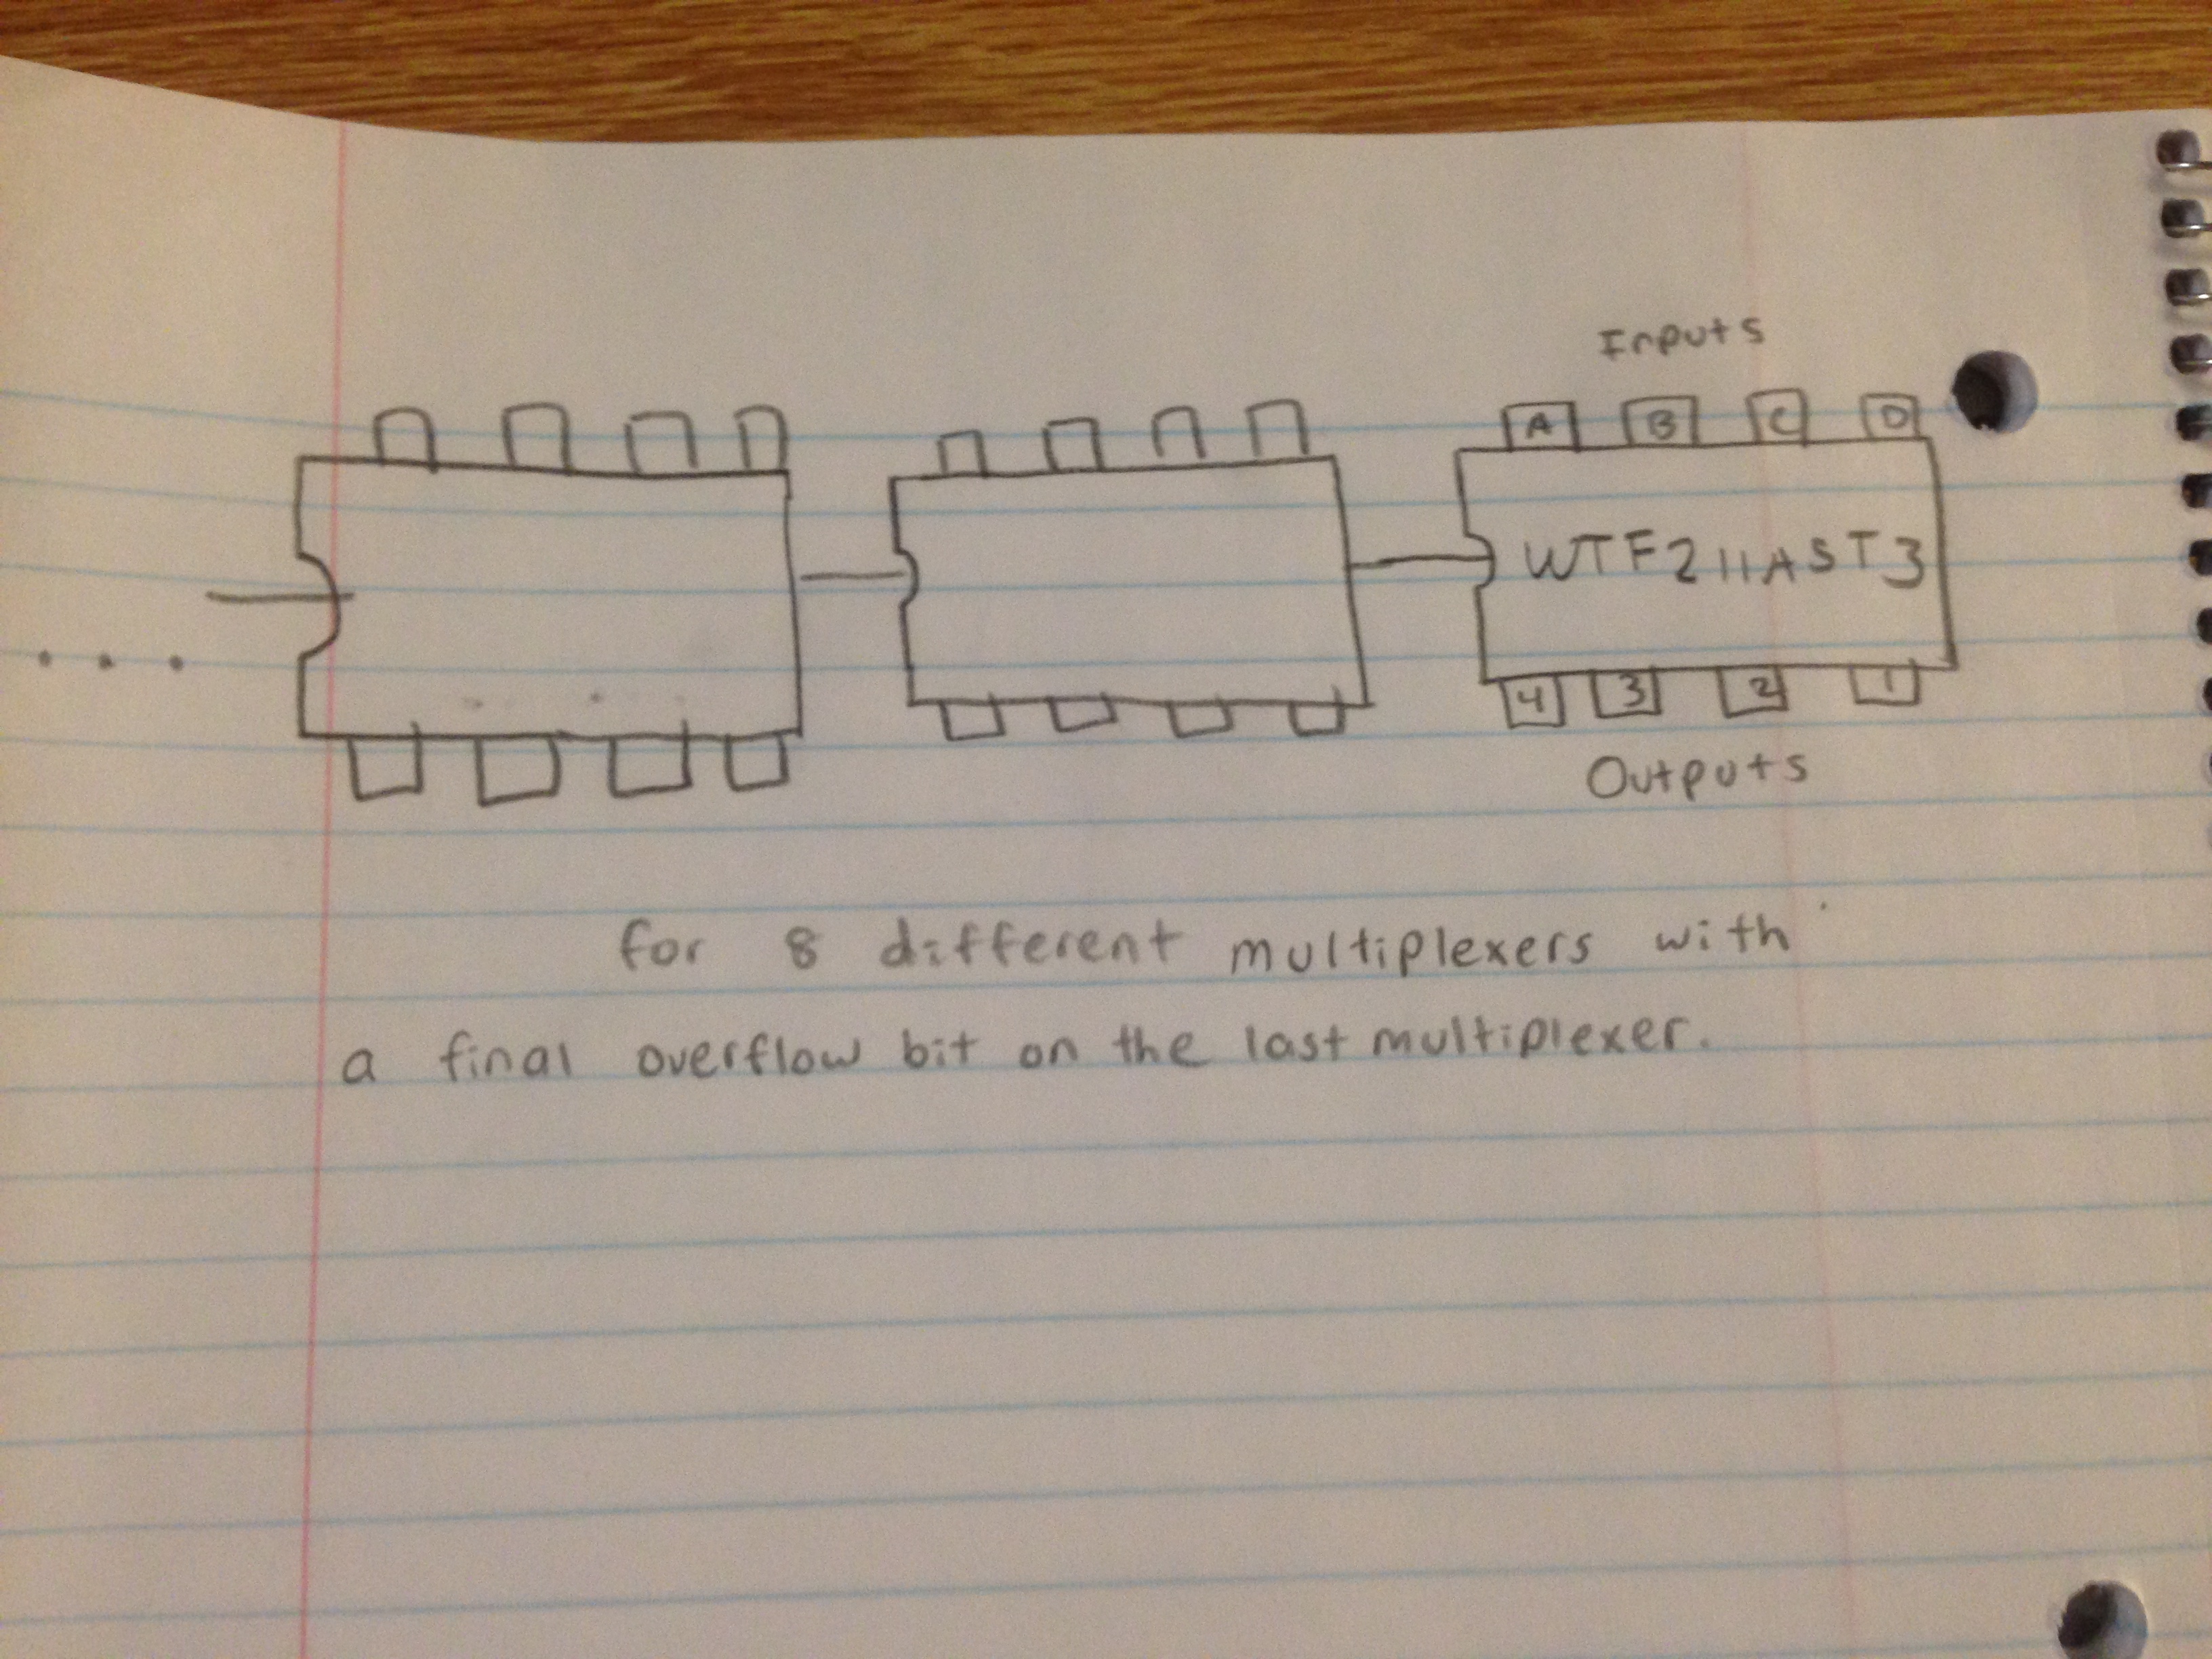 Inputs
A B C D
WTF211AST3
4 3 2 1
Outputs
for 8 different multiplexers with
a final overflow bit on the last multiplexer.